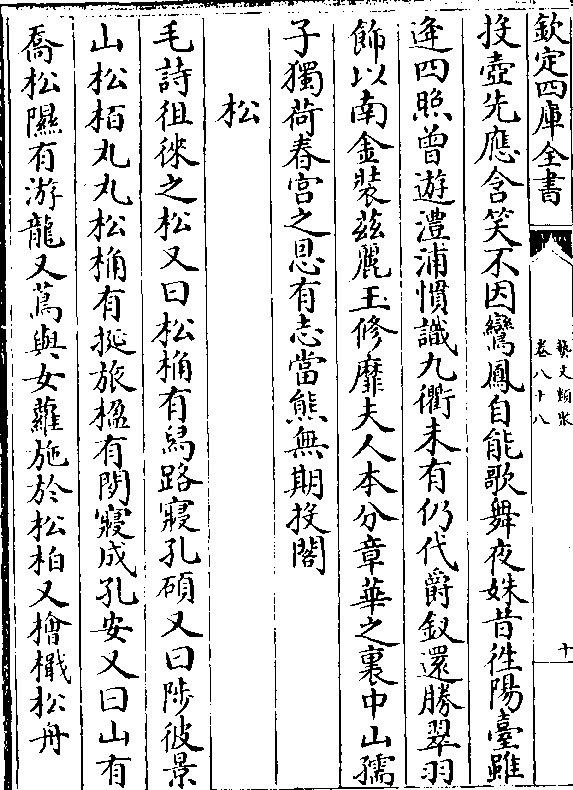 欽定四庫全書
藝文類聚
卷八十八
十
投壺先應含笑不因鸞鳳自能歌舞夜姝昔徃陽臺雖
逢四照曾遊澧浦慣識九衢未有仍代爵釵還勝翠羽
飾以南金裝兹麗玉修靡夫人本分章華之裏中山孺
子獨荷春宫之恩有志當熊無期投閣
松
毛詩徂徠之松又曰松桷有舄路寢孔碩又曰陟彼景
山松栢丸丸松桷有挻旅楹有閑寢成孔安又曰山有
喬松隰有游龍又蔦與女蘿施於松柏又檜檝松舟